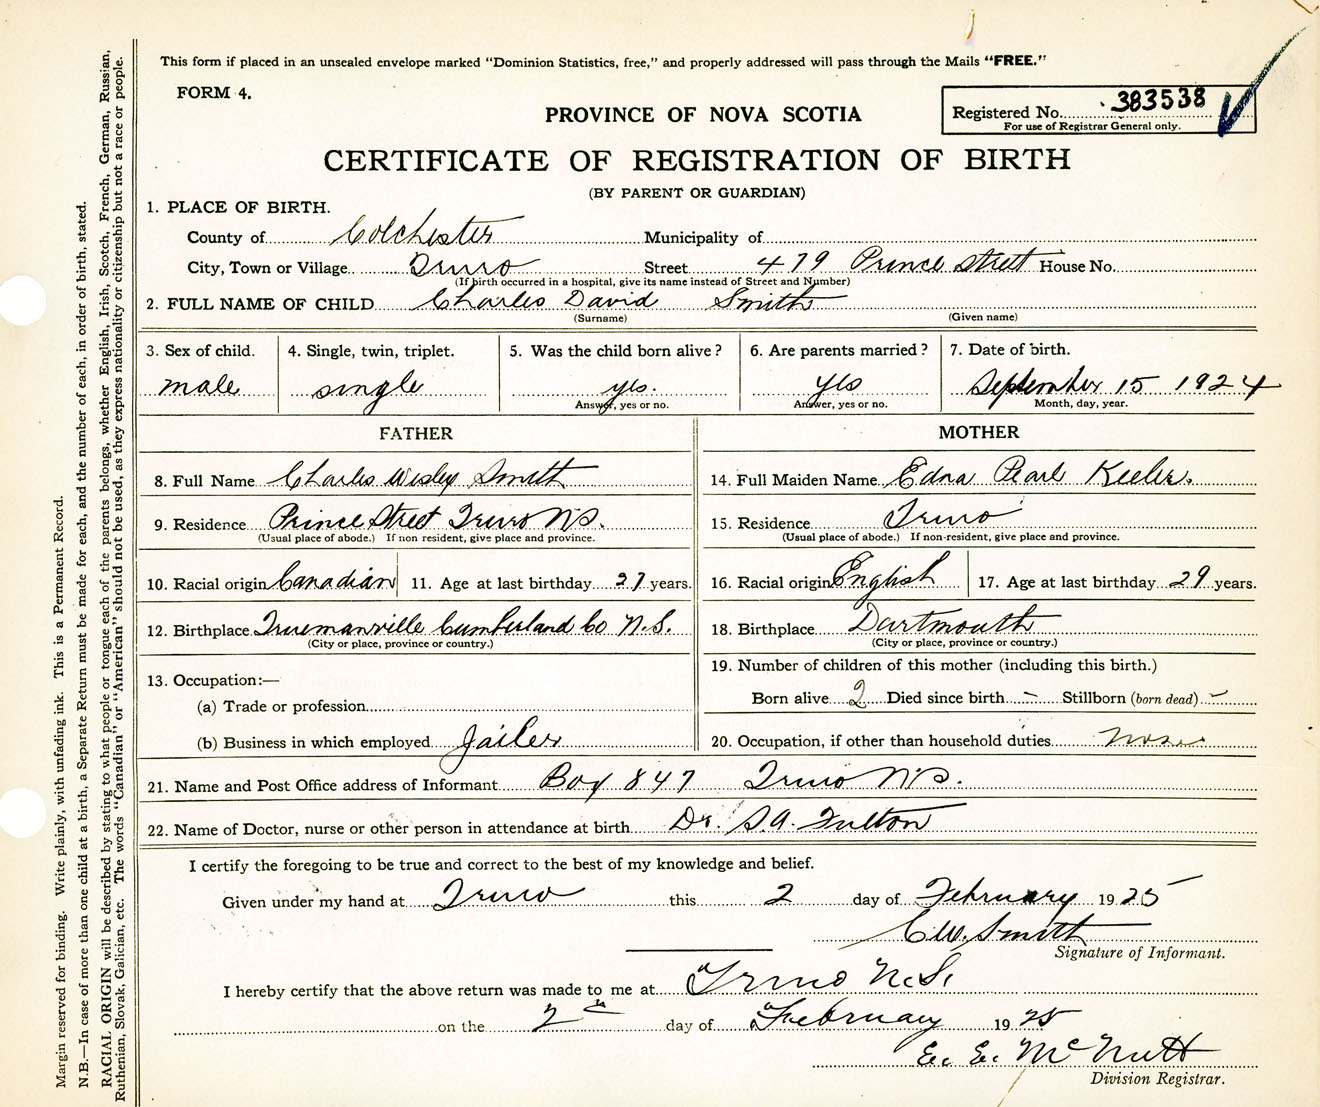 This form if placed in an unsealed envelope marked "Dominion Statistics, free," and properly addressed will pass through the Mails "FREE."
FORM 4.
Registered No. 383538
For use of Registrar General only.
PROVINCE OF NOVA SCOTIA
CERTIFICATE OF REGISTRATION OF BIRTH
(BY PARENT OR GUARDIAN)
1. PLACE OF BIRTH.
County of Colchester Municipality of
City, Town or Village Truro Street 479 Prince Street House No.
(If birth occurred in a hospital, give its name instead of Street and Number)
2. FULL NAME OF CHILD Charles David Smith
(Surname) (Given name)
3. Sex of child. 4. Single, twin, triplet. 5. Was the child born alive? 6. Are parents married? 7. Date of birth.
male single yes. yes September 15 1924
Answer, yes or no. Answer, yes or no. Month, day, year.
FATHER MOTHER
8. Full Name Charles Wesley Smith 14. Full Maiden Name Edna Pearl Keeler.
9. Residence Prince Street Truro N.S. 15. Residence Truro
(Usual place of abode.) If non resident, give place and province. (Usual place of abode.) If non-resident, give place and province.
10. Racial origin Canadian 11. Age at last birthday 27 years. 16. Racial origin English 17. Age at last birthday 29 years.
12. Birthplace Truemanville Cumberland Co N.S. 18. Birthplace Dartmouth
(City or place, province or country.) (City or place, province or country.)
13. Occupation:— 19. Number of children of this mother (including this birth.)
(a) Trade or profession Born alive 2 Died since birth – Stillborn (born dead) –
(b) Business in which employed Jailer 20. Occupation, if other than household duties none
21. Name and Post Office address of Informant Box 847 Truro N.S.
22. Name of Doctor, nurse or other person in attendance at birth Dr. S.A. Fulton
I certify the foregoing to be true and correct to the best of my knowledge and belief.
Given under my hand at Truro this 2 day of February 1925
C.W. Smith
Signature of Informant.
I hereby certify that the above return was made to me at Truro N.S.
on the 2nd day of February 1925
E. E. McNutt
Division Registrar.
Margin reserved for binding. Write plainly, with unfading ink. This is a Permanent Record.
N.B.—In case of more than one child at a birth, a Separate Return must be made for each, and the number of each, in order of birth, stated.
RACIAL ORIGIN will be described by stating to what people or tongue each of the parents belongs, whether English, Irish, Scotch, French, German, Russian,
Ruthenian, Slovak, Galician, etc. The words "Canadian" or "American" should not be used, as they express nationality or citizenship but not a race or people.